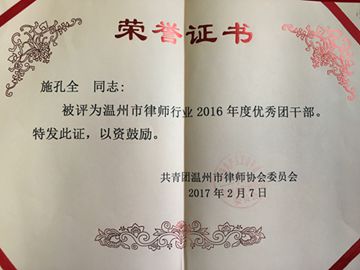 荣誉证书
施孔全 同志:
被评为温州市律师行业2016年度优秀团干部。
特发此证，以资鼓励。
共青团温州市律师协会委员会
2017年2月7日